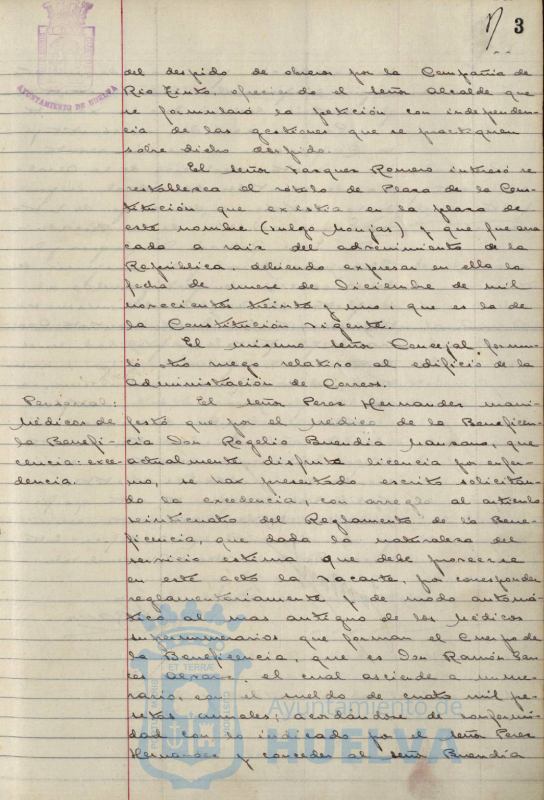 3
AYUNTAMIENTO DE HUELVA
del despido de obreros por la Compañia de
Rio Tinto, ofreciendo el señor Alcalde que
se formulará la petición con independen-
cia de las gestiones que se practiquen
sobre dicho despido.
El señor Vazquez Romero interesó se
restablezca el rotulo de Plaza de la Cons-
titución que existia en la plaza de
este nombre (vulgo Monjas) y que fue arran
cado a raiz del advenimiento de la
República, debiendo expresar en ella la
fecha de nueve de Diciembre de mil
novecientos treinta y uno, que es la de
la Constitución vigente.
El mismo señor Concejal formu-
ló otro ruego relativo al edificio de la
Administración de Correos.
Personal:
Médicos de
la Benefi-
cencia: exce-
dencia.
El señor Perez Hernandez mani-
festó que por el Médico de la Beneficen-
cia Don Rogelio Buendia Manzano, que
actualmente disfruta licencia por enfer-
mo, se ha presentado escrito solicitan-
do la excedencia, con arreglo al articulo
veinticuatro del Reglamento de la Bene-
ficencia, que dada la naturaleza del
servicio estima que debe proveerse
en este acto la vacante, por corresponder
reglamentariamente y de modo automá-
tico al mas antiguo de los Médicos
supernumerarios que forman el Cuerpo de
la Beneficencia, que es Don Ramón
el cual asciende a nume-
rario con el sueldo de cuatro mil pe-
setas anuales; acordándose de conformi-
dad con lo indicado por el señor Perez
Hernandez y conceder al señor Buendia
Ayuntamiento de
HUELVA